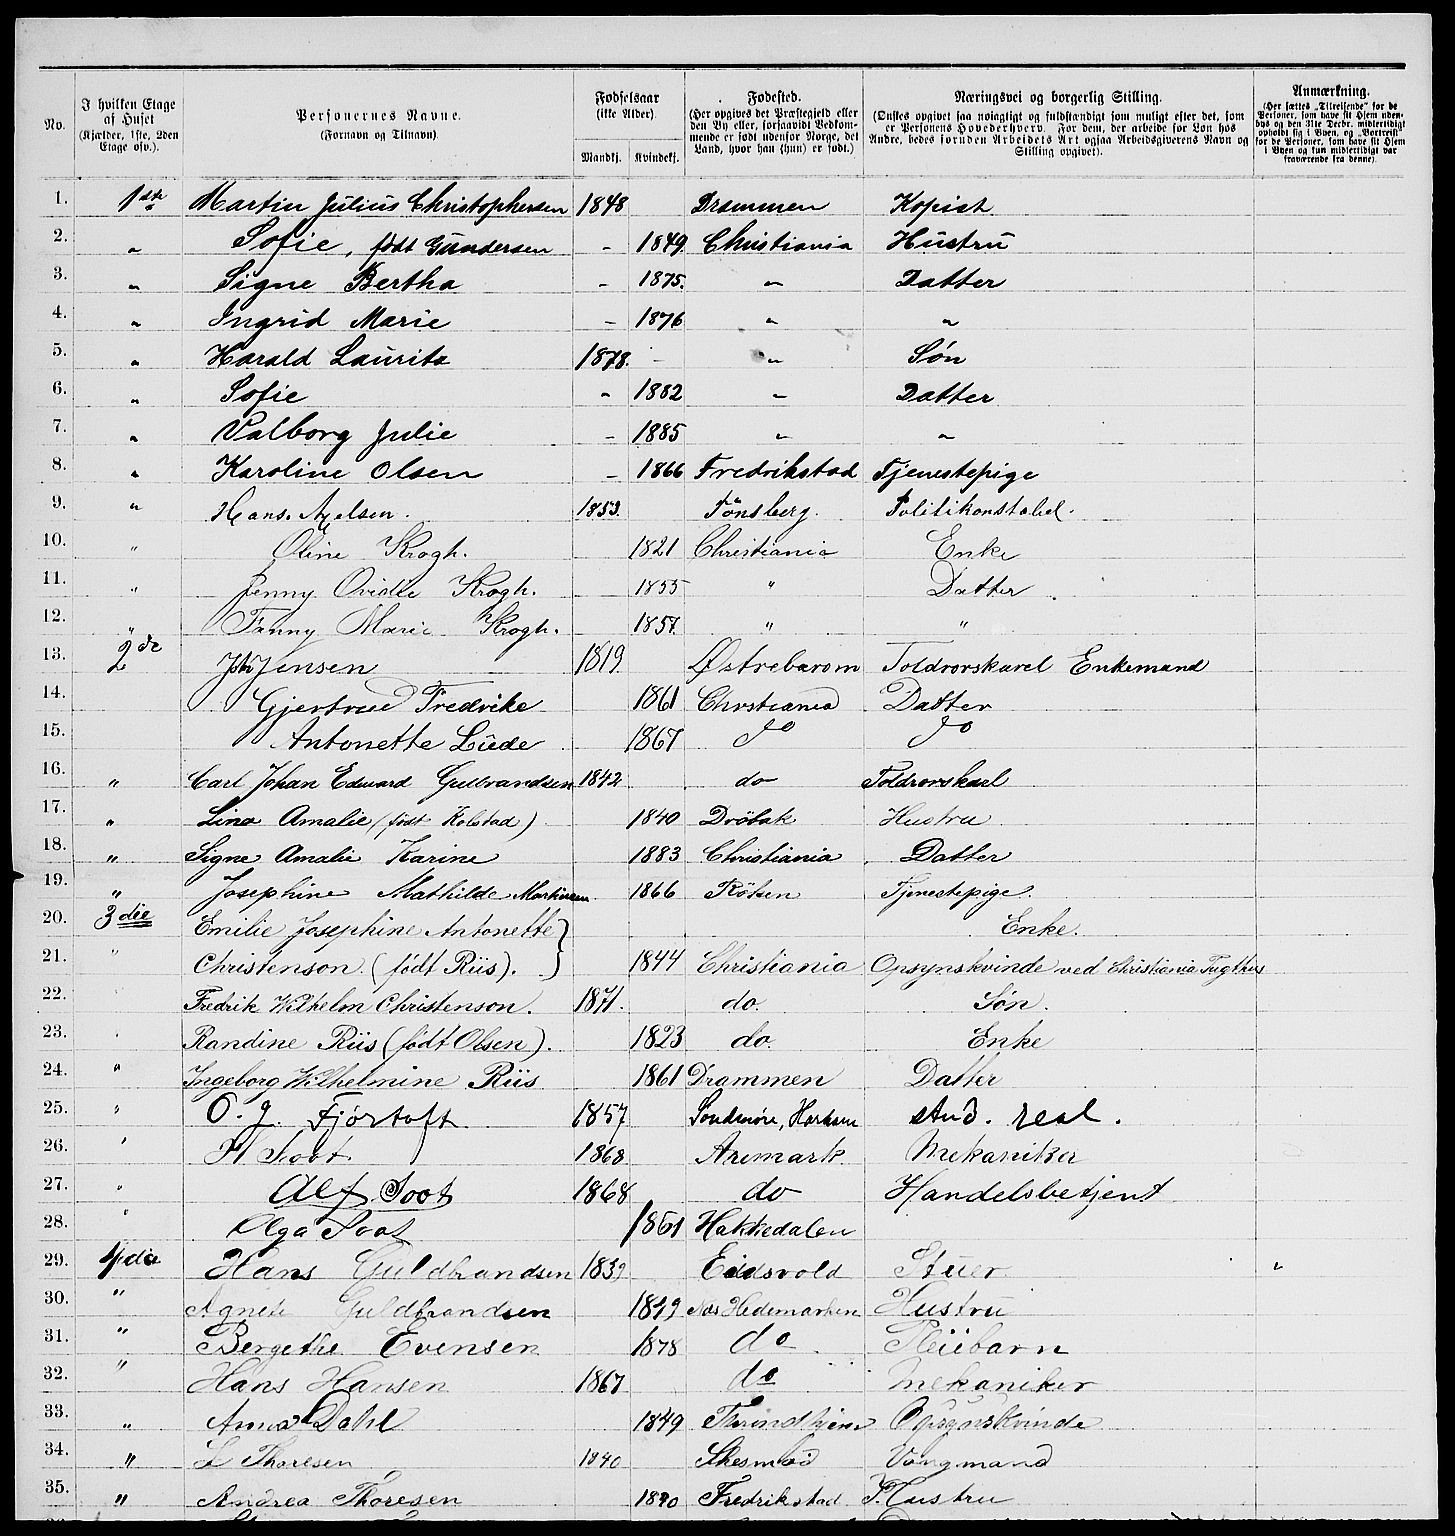 No. | I hvilken Etage af Huset (Kjælder, 1ste, 2den Etage osv.). | Personernes Navne. (Fornavn og Tilnavn). | Fødselsaar (ikke Alder). Mandkj. | Kvindekj. | Fødested. (Her opgives det Præstegjeld eller den By eller, forsaavidt Vedkommende er født udenfor Norge, det Land, hvor han (hun) er født.) | Næringsvei og borgerlig Stilling. (Ønskes opgivet saa nøiagtigt og fuldstændigt som muligt efter det, som er Personens Hovederhverv. For dem, der arbeide for Løn hos Andre, bedes foruden Arbeidets Art ogsaa Arbeidsgiverens Navn og Stilling opgivet). | Anmærkning. (Her sættes „Tilreisende" for de Personer, som have sit Hjem udenbys og den 31te Decbr. midlertidigt opholdt sig i Byen, og „Bortreist" for de Personer, som have sit Hjem i Byen og kun midlertidigt var fraværende fra denne).
1. 1ste Martin Julius Christophersen 1848 Drammen Kopist
2. " Sofie, født Gundersen - 1849. Christiania Hustru
3. " Signe Bertha - 1875. " Datter
4. " Ingrid Marie - 1876 " "
5. " Harald Lauritz 1878. - " Søn
6. " Sofie " 1882 " Datter
7. " Valborg Julie - 1885 " "
8. " Karoline Olsen - 1866 Fredrikstad Tjenestepige
9. " Hans. Axelsen. 1853. Tönsberg. Politikonstabel.
10. " Oline Krogh. 1821 Christiania Enke
11. " Jenny Ovidie Krogh. 1855 " Datter
12. " Fanny Marie Krogh. 1857. " "
13. 2de Jensen 1819. Toldrorskarel Enkemand
14. Gjertrud Fredrike 1861 Christiania Datter
15. Antonette 1867 do do
16. " Carl Johan Edward Gulbrandsen 1842 do Toldrorskarl
17. " Lina Amalie (født Kolstad) 1840 Dröbak Hustru
18. " Signe Amalie Karine 1883 Christiania Datter
19. " Josephine Mathilde Martinsen 1866 Röken Tjenestepige.
20. 3die Emilie Josephine Antonette } Enke.
21. " Christenson. (født Riis). } 1844 Christiania Opsynskvinde ved Christiania Tugthus
22. " Fredrik Wilhelm Christenson. 1871. do. Søn.
23. " Randine Riis (født Olsen). 1823 do. Enke
24. " Ingeborg Wilhelmine Riis 1861 Drammen Datter
25. " O. J. Fjørtoft. 1857 Søndmøre, stud. real.
26. " Soot. 1868 Aremark. Mekaniker
27. " Alf Soot 1868 do Handelsbetjent
28. " Olga Soot 1861 Hakkedalen
29. 4die Hans Guldbrandsen 1839 Eidsvold Stuer "
30. " Agnete Guldbrandsen 1849 Næs Hedemarken Hustru
31. " Bergethe Evensen 1878 do Pleiebarn
32. " Hans Hansen 1867 do Mekaniker
33. " Anna Dahl 1849 Throndhjem Opsynskvinde
34. " L Thoresen 1840 Skesmod Vongmand
35. " Andrea Thoresen 1840 Fredrikstad Hustru